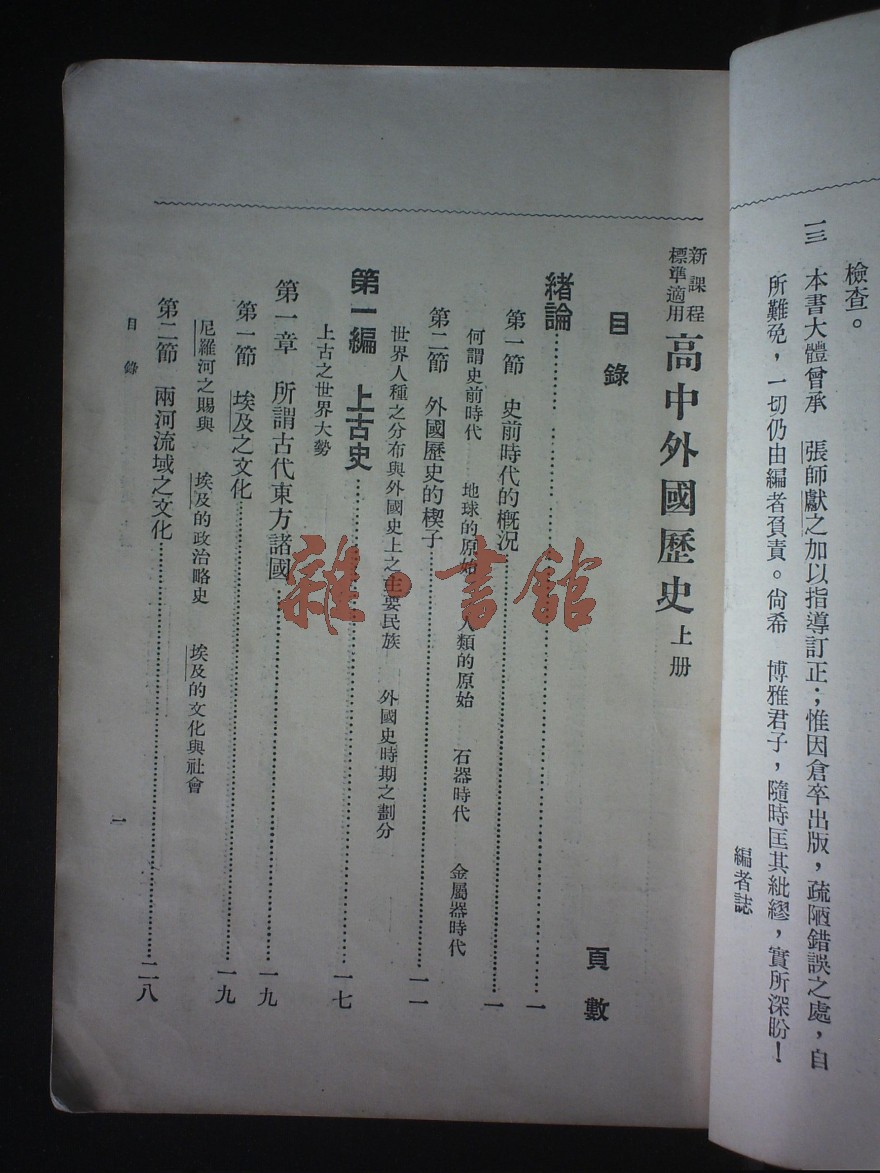 檢查。
一三　本書大體曾承　張師獻之加以指導訂正；惟因倉卒出版，疏陋錯誤之處，自
所難免，一切仍由編者負責。尙希　博雅君子，隨時匡其紕繆，實所深盼！
編者誌
新課程標準適用　高中外國歷史　上册
目錄　頁數
緒論…………一
第一節　史前時代的槪況…………一
何謂史前時代　地球的原始　人類的原始　石器時代　金屬器時代
第二節　外國歷史的楔子…………一一
世界人種之分布與外國史上之主要民族　外國史時期之劃分
第一編　上古史…………一七
上古之世界大勢
第一章　所謂古代東方諸國…………一九
第一節　埃及之文化…………一九
尼羅河之賜與　埃及的政治略史　埃及的文化與社會
第二節　兩河流域之文化…………二八
目錄　一
雜·書館